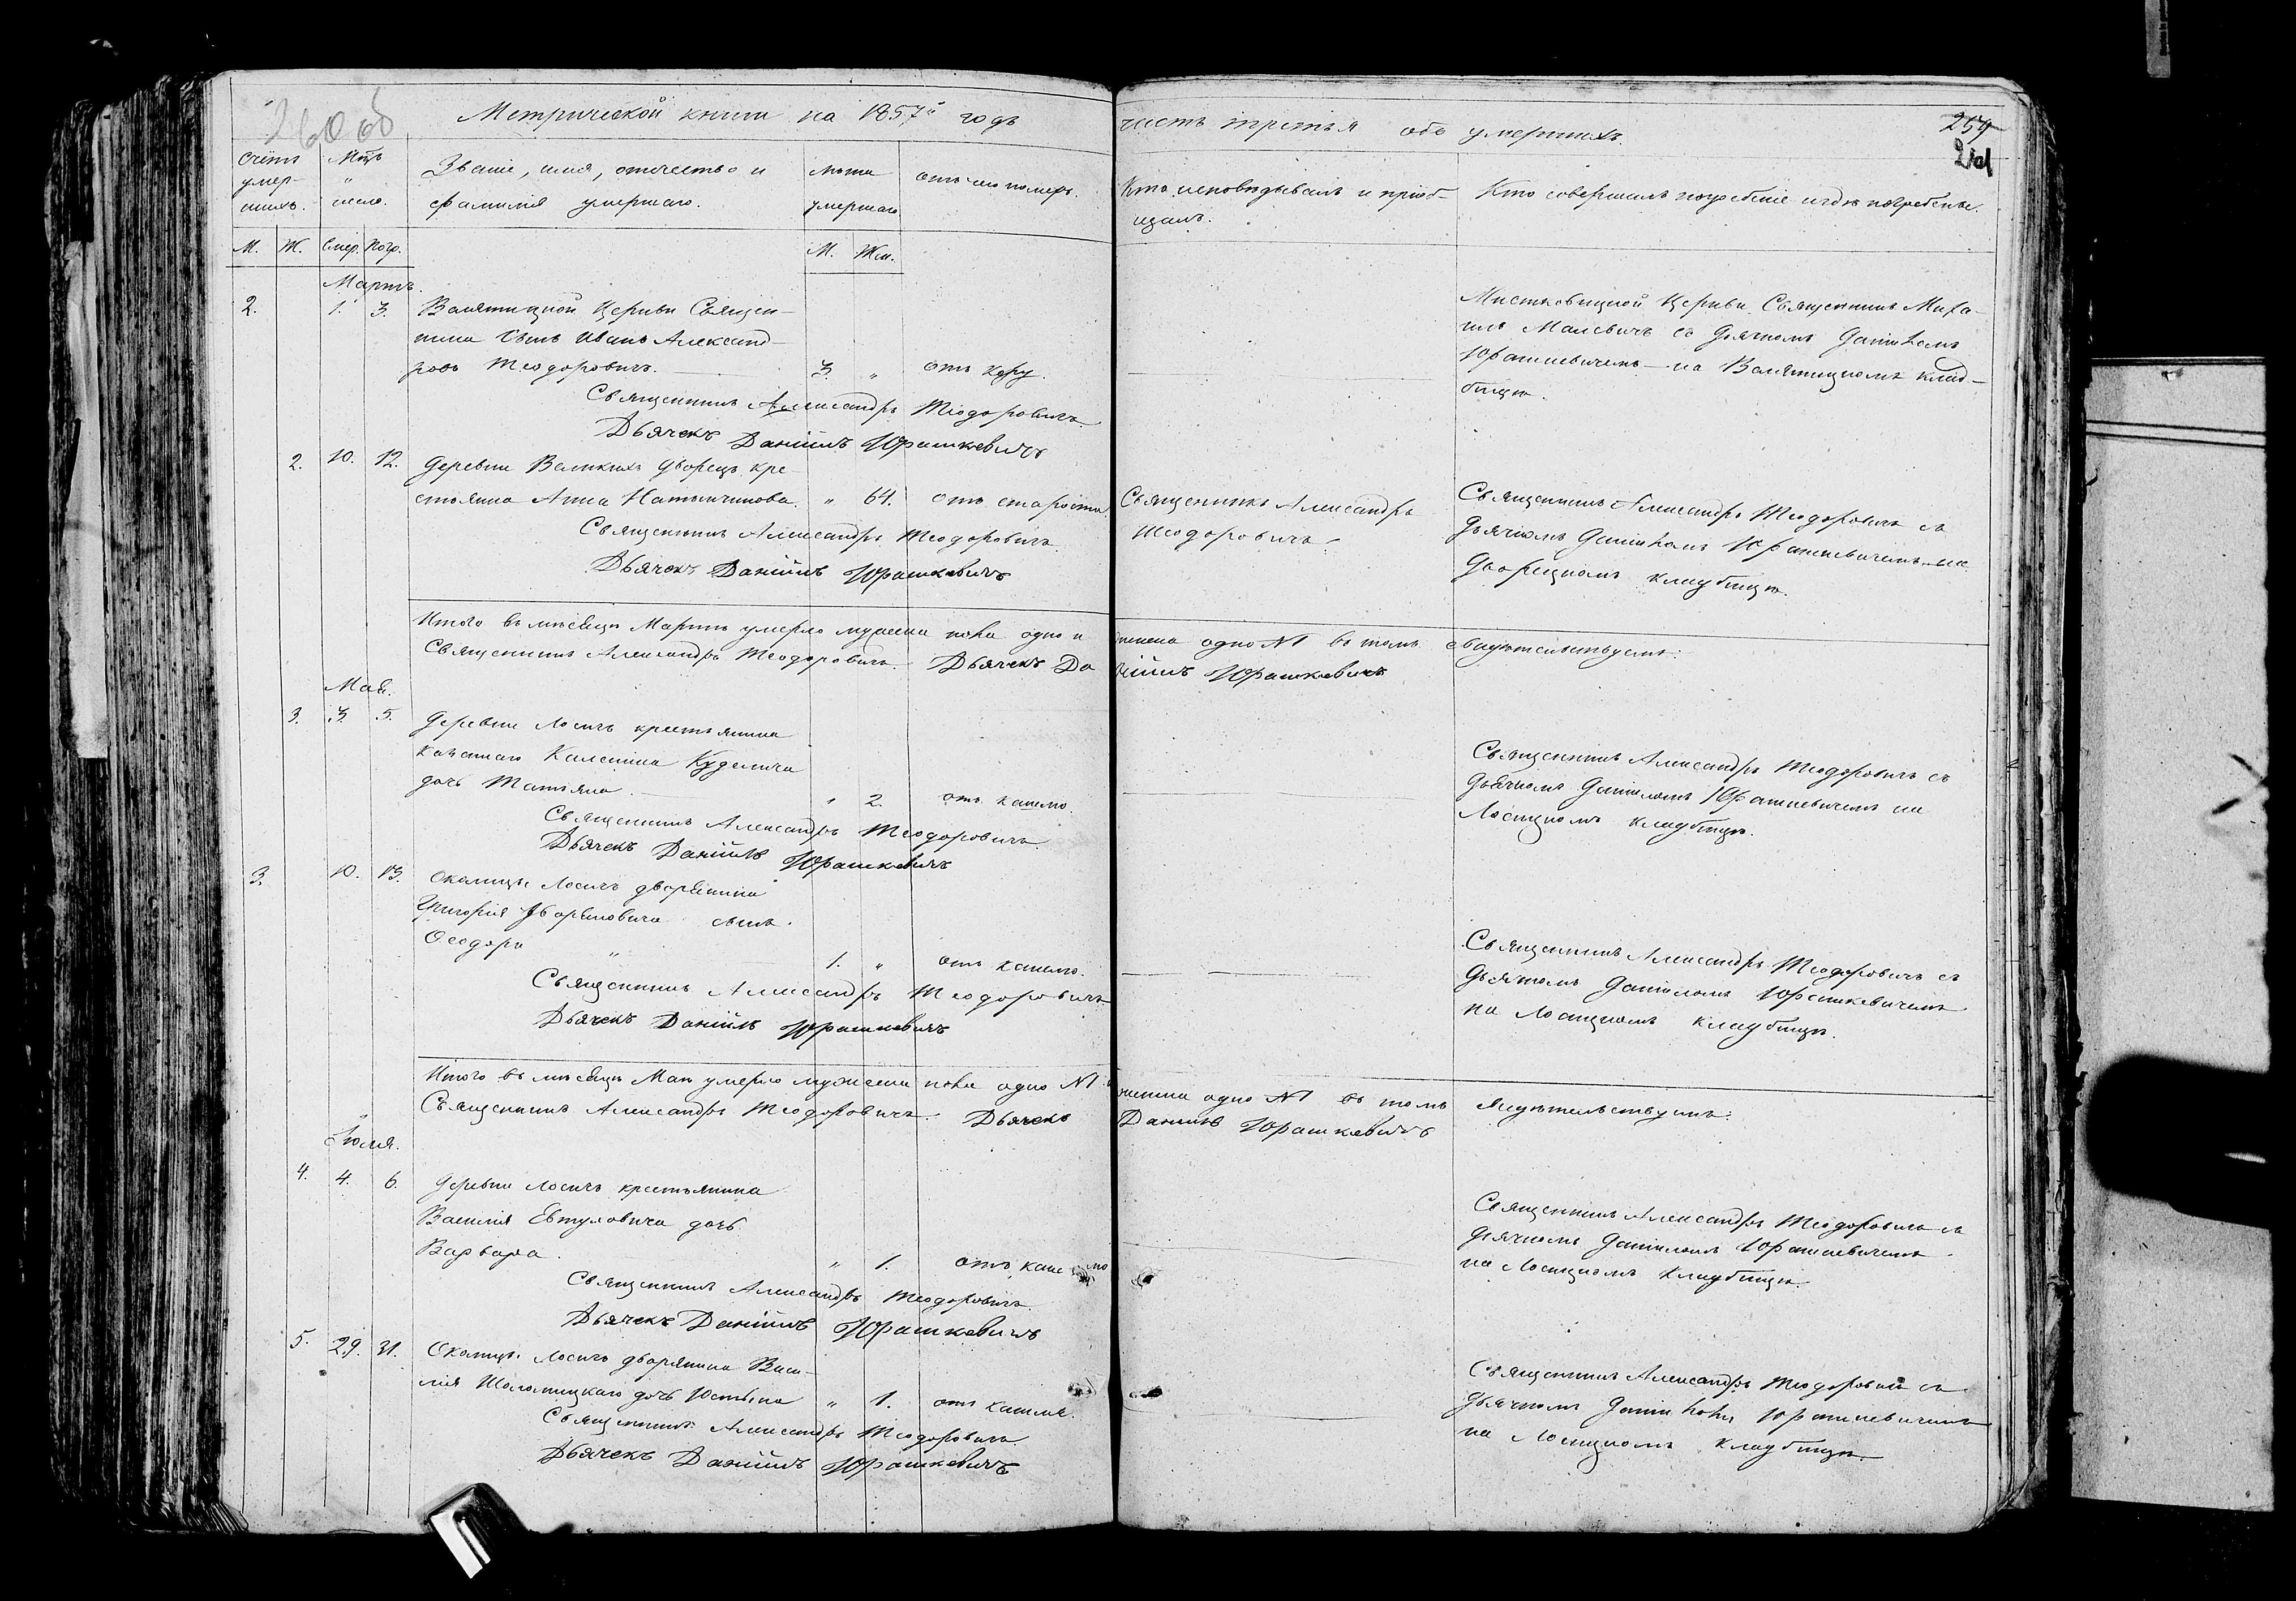 260 об
Метрической книги на 1857й годъ
часть третья объ умершихъ.
259
261
Счетъ умер-шихъ.
Мѣц. и число.
Званіе, имя, отчество и фамилія умершаго.
Лѣта умершаго
отъ чего померъ.
Кто исповѣдывалъ и пріоб-
щалъ.
Кто совершалъ погребеніе и гдѣ погребены.
М. Ж. Смер. Погр. М. Жен.
Мартъ.
2. 1. 3. Церкви Священ-
ника сынъ Иванъ Александ-
ровъ Теодоровичъ. 3. " отъ кору.
Священникъ Александръ Теодоровичъ
Дьячекъ Даніилъ Юрашкевичъ
Церкви Священникъ Миха-
илъ Малевичъ съ Дьячкомъ Даніиломъ
Юрашкевичемъ на клад-
бищѣ.
2. 10. 12. Деревни Великихъ Дворецъ кре-
стьянка Анна " 64. отъ старости
Священникъ Александръ Теодоровичъ
Дьячекъ Даніилъ Юрашкевичъ
Священникъ Александръ
Теодоровичъ.
Священникъ Александръ Теодоровичъ съ
Дьячкомъ Даніиломъ Юрашкевичемъ на
Дворецкомъ кладбищѣ.
Итого въ мѣсяцѣ Мартѣ умерло мужеска пола одно и женска одно №1 въ томъ свидѣтельствуемъ:
Священникъ Александръ Теодоровичъ. Дьячекъ Даніилъ Юрашкевичъ
Май.
3. 3. 5. Деревни Лосичъ крестьянина
Каленика Куделича
дочь Татьяна. " 2. отъ кашлю.
Священникъ Александръ Теодоровичъ
Дьячекъ Даніилъ Юрашкевичъ
Священникъ Александръ Теодоровичъ съ
Дьячкомъ Даніиломъ Юрашкевичемъ на
Лосицкомъ кладбищѣ.
3. 10. 13. Околицы Лосичъ дворянина
Григорія сынъ
Ѳеодоръ " 1. " отъ кашлю.
Священникъ Александръ Теодоровичъ
Дьячекъ Даніилъ Юрашкевичъ
Священникъ Александръ Теодоровичъ съ
Дьячкомъ Даніиломъ Юрашкевичемъ
на Лосицкомъ кладбищѣ.
Итого въ мѣсяцѣ Маѣ умерло мужеска пола одно №1 и женска одно №1 въ томъ свидѣтельствуемъ:
Священникъ Александръ Теодоровичъ. Дьячекъ Даніилъ Юрашкевичъ
Іюля.
4. 4. 6. Деревни Лосичъ крестьянина
Василія Евтуховича дочь
Варвара. " 1. отъ кашлю
Священникъ Александръ Теодоровичъ.
Дьячекъ Даніилъ Юрашкевичъ
Священникъ Александръ Теодоровичъ съ
Дьячкомъ Даніиломъ Юрашкевичемъ
на Лосицкомъ кладбищѣ.
5. 29. 31. Околицы Лосичъ дворянина Васи-
лія Шоломицкаго дочь Юстина " 1. отъ кашля.
Священникъ Александръ Теодоровичъ.
Дьячекъ Даніилъ Юрашкевичъ
Священникъ Александръ Теодоровичъ съ
Дьячкомъ Даніиломъ Юрашкевичемъ
на Лосицкомъ кладбищѣ.